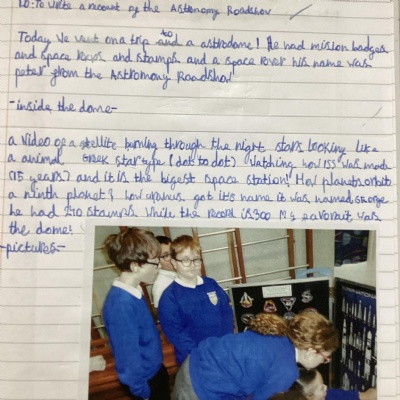 LO: To write a recount of the Astronomy Roadshow
Today We went on a trip to a astrodome! He had mision badges
and space and stamps and a space rover his name was
peter from the Astronomy Roadshow
-inside the dome-
a video of a satellite burning through the night stars looking like
a animal. Greek star type (dot to dot) Watching how ISS was made
(15 years) and it is the bigest space station! How planets orbit
a ninth planet? how uranus got it's name it was named George
he had 210 stamps while the record is 300 My favorit was
the dome!
-pictures-